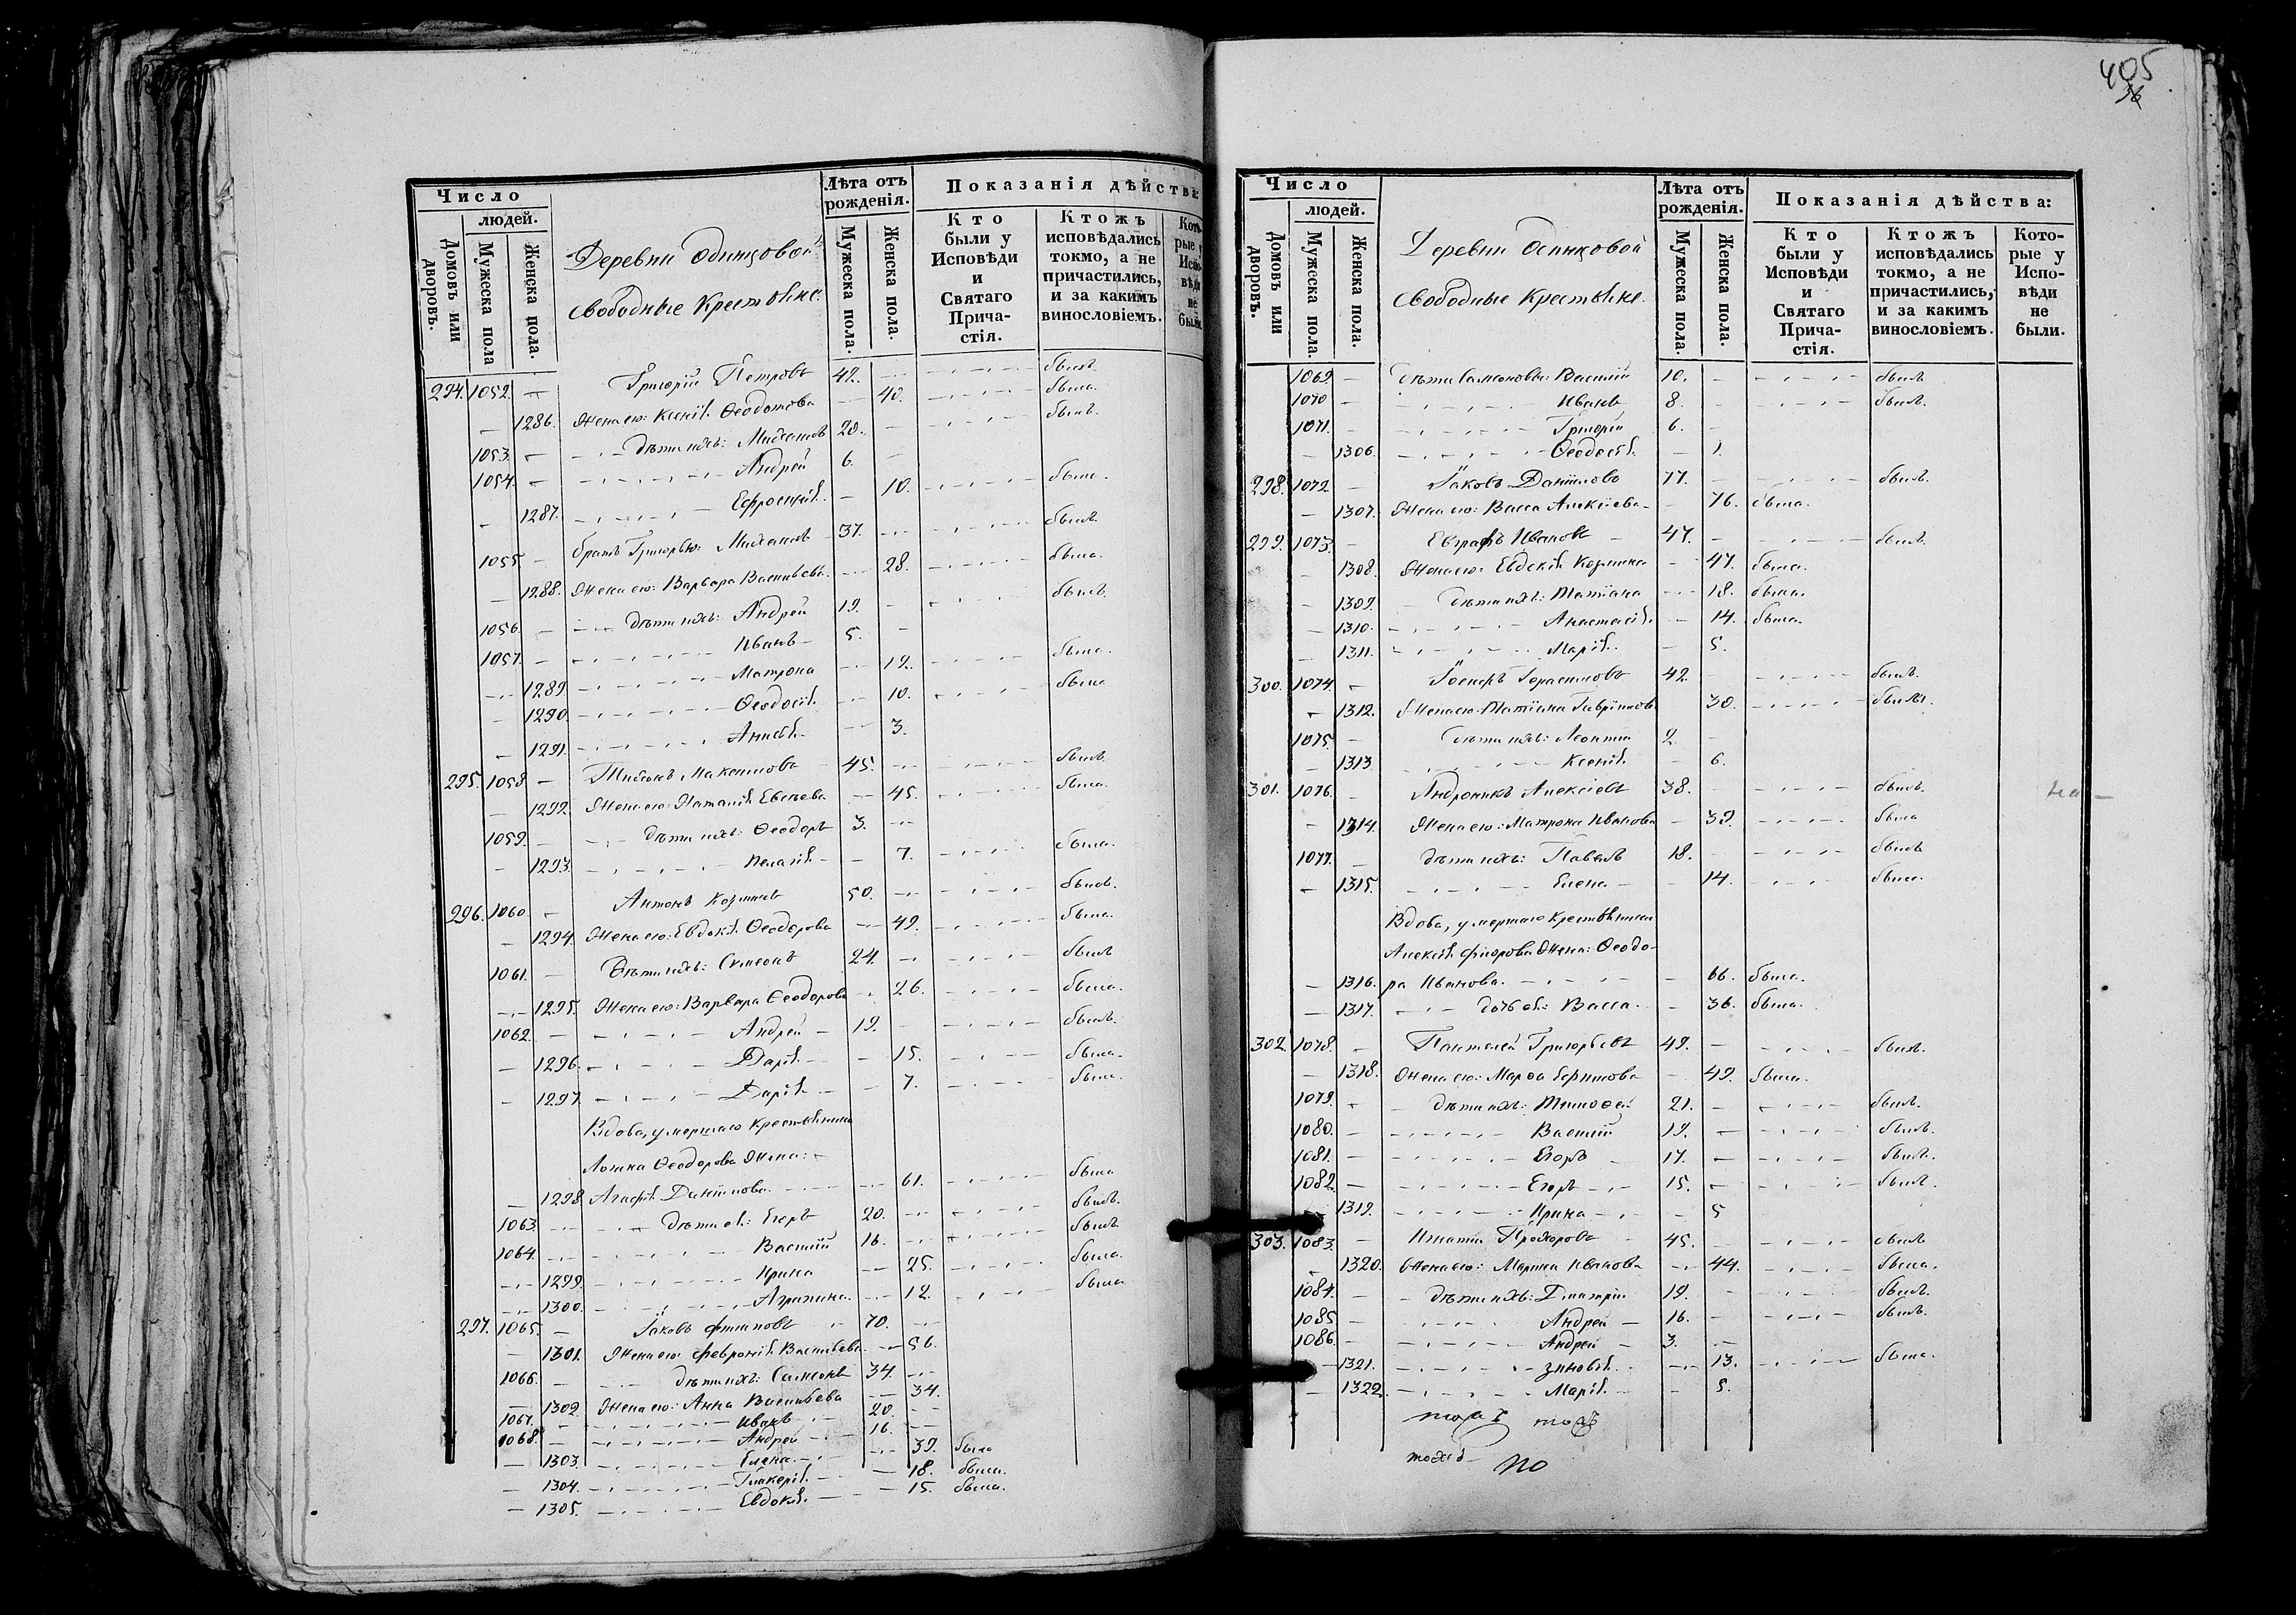 Число
людей.
Домовъ или дворовъ.
Мужеска пола
Женска пола.
Деревни Одинцовой
свободные Крестьяне.
Лѣта отъ рожденія.
Мужеска пола.
Женска пола.
Показанія дѣйства:
Кто были у Исповѣди и Святаго Прича-стія.
Ктожъ исповѣдались токмо, а не причастились, и за какимъ винословіемъ.
Кото-рые у Испо-вѣди не были.
294. 1052. — Григорій Петровъ 42. былъ
1286. Жена его: Ксенія Ѳеодотова 40. была
1053. Дѣти ихъ: Михаилъ 20. былъ.
1054. Андрей 6.
1287. Ефросинія 10. была.
1055 братъ Григорью: Михаилъ 37. былъ
1288. Жена его: Варвара Васильева 28. была.
1056. дѣти ихъ: Андрей 19. былъ.
1057. Иванъ 5.
1289. Матрона 12. была.
1290. Ѳеодосія 10. была
1291. 3.
295. 1058 Максимовъ 45. былъ
1292. Жена его: Наталія 45. была.
1059. дѣти ихъ: Ѳеодоръ 3.
1293. Пелагія 7. была.
296. 1060 Антонъ Козминъ 50. былъ.
1294. Жена его: Евдокія Ѳеодорова 49. была.
1061. Дѣти ихъ: Симеонъ 24. былъ
1295. Жена его: Варвара Ѳеодорова 26. была.
1062. Андрей 19. былъ.
1296. Дарія 15. была.
1297. Дарія 7. была.
Вдова, умершаго Крестьянина
Ѳеодорова Жена:
1298. Агафія Даніилова 61. была
1063. дѣти ея: Егоръ 20. былъ.
1064. Василій 16. былъ
1299. Ирина 25. была.
1300. Агрипина 12. была
297. 1065. Іаковъ Филиповъ 70.
1301. Жена его: Февронія Васильева 56.
1066. дѣти ихъ: Самсонъ 34.
1302. Жена его: Анна Васильева 34.
1067. Иванъ 20.
1068. Андрей 16.
1303. Елена 39. была
1304. Гликерія 18. была.
1305. Евдокія 15. была.
405
Число
людей.
Домовъ или дворовъ.
Мужеска пола
Женска пола.
Деревни Одинцовой
свободные Крестьяне.
Лѣта отъ рожденія.
Мужеска пола.
Женска пола.
Показанія дѣйства:
Кто были у Исповѣди и Святаго Прича-стія.
Ктожъ исповѣдались токмо, а не причастились, и за какимъ винословіемъ.
Кото-рые у Испо-вѣди не были.
1069. дѣти Самсоновы: Василій 10. былъ
1070 Иванъ 8. былъ.
1071. Григорій 6.
1306. Ѳеодосія 1.
298. 1072 Іаковъ Даніиловъ 77. былъ.
1307. Жена его: Васса Алексіева 76. была.
299. 1073. Евграфъ Ивановъ 47. былъ.
1308. Жена его: Евдокія Козмина 47. была.
1309. дѣти ихъ: Татіана 18. была.
1310. Анастасія 14. была.
1311. Марія 5.
300. 1074. Іосифъ Герасимовъ 42. былъ.
1312. Жена его: Татіана Гавріилова 30. была.
1075. дѣти ихъ: Леонтій 2.
1313 Ксенія 6.
301. 1076. Андроникъ Алексіевъ 38. былъ.
1314. Жена его: Матрона Иванова 39. была
1077. дѣти ихъ: Павелъ 18. былъ
1315. Елена 14. была.
Вдова, умершаго Крестьянина
Алексія Жена: Ѳеодо-
1316. ра Иванова. 66. была.
1317. дочь ея: Васса. 36. была.
302. 1078. Пантелей Григорьевъ 49. былъ.
1318. Жена его: Марѳа Ефимова 49. была.
1079. дѣти ихъ: Тимоѳей 21. былъ.
1080. Василій 19. былъ.
1081. Егоръ 17. былъ.
1082. Егоръ 15. былъ.
1319. Ирина 5
303. 1083. Игнатій Прохоровъ 45. былъ
1320. Жена его: Марина Иванова 44. была.
1084. дѣти ихъ: Дмитрій 19. былъ.
1085 Андрей 16. былъ.
1086. Андрей 3.
1321. Зиновія 13. была.
1322. Марія 5.